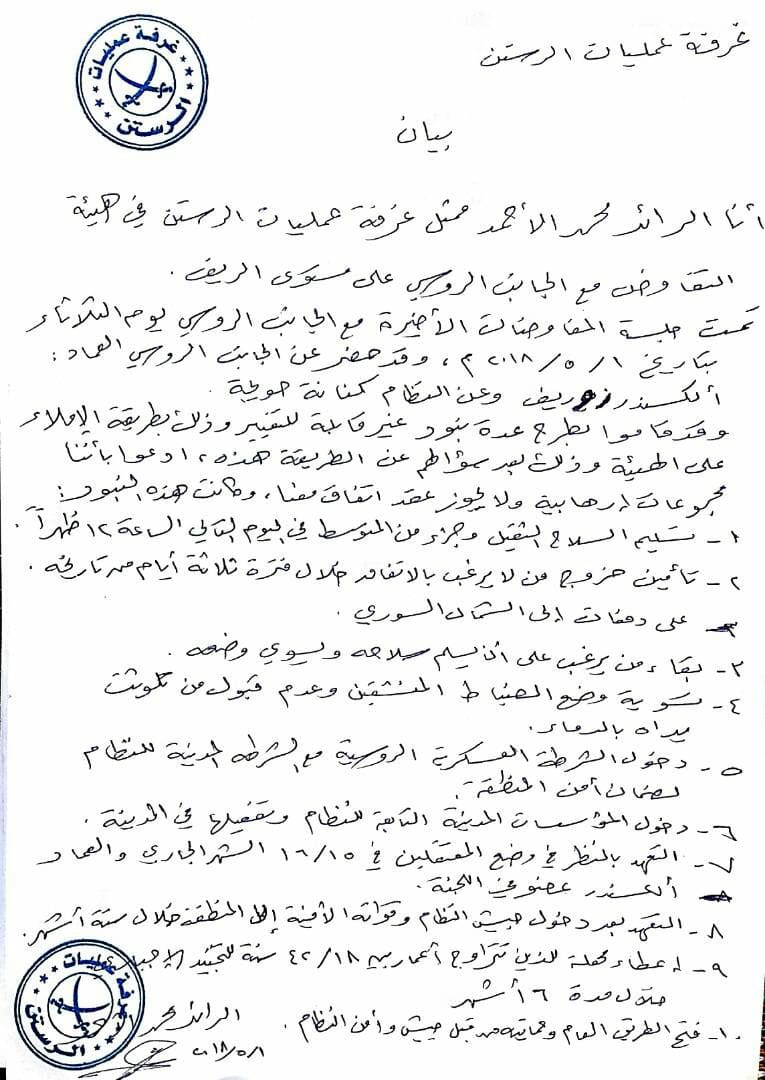 غرفة عمليات الرستن
غرفة عمليات الرستن
بيان
أنا الرائد محمد الأحمد ممثل غرفة عمليات الرستن في هيئة
التفاوض مع الجانب الروسي على مستوى الريف .
تمت جلسة المفاوضات الأخيرة مع الجانب الروسي يوم الثلاثاء
بتاريخ ٢٠١٨/٥/١ م ، وقد حضر عن الجانب الروسي العماد :
ألكسندر وعن النظام كنانة حويجة .
وقد قاموا بطرح عدة بنود غير قابلة للتغيير وذلك بطريقة الإملاء
على الهيئة وذلك بعد سؤالهم عن الطريقة هذه ، ادعوا بأننا
مجموعات إرهابية ولا يجوز عقد اتفاق معنا ، وكانت هذه البنود :
١- تسليم السلاح الثقيل وجزء من المتوسط في اليوم التالي الساعة ١٢ ظهراً .
٢- تأمين خروج من لا يرغب بالاتفاق خلال فترة ثلاثة أيام من تاريخه .
على دفعات إلى الشمال السوري .
٣- بقاء من يرغب على أن يسلم سلاحه ويسوي وضعه .
٤- تسوية وضع الضباط المنشقين وعدم قبول من تلوثت
يداه بالدماء .
٥- دخول الشرطة العسكرية الروسية مع الشرطة المدنية للنظام
لضمان أمن المنطقة .
٦- دخول المؤسسات المدنية التابعة للنظام وتفعيلها في المدينة .
٧- التعهد بالنظر في وضع المعتقلين في ١٦/١٥ الشهر الجاري والعماد
ألكسندر عضو في اللجنة .
٨- التعهد بعدم دخول جيش النظام وقواته الأمنية إلى المنطقة خلال ستة أشهر .
٩- إعطاء مهلة للذين تتراوح أعمارهم بين ٤٢/١٨ سنة للتجنيد الإجباري
خلال مدة ٦ أشهر
١٠- فتح الطريق العام وحمايته من قبل جيش وأمن النظام .
الرائد محمد
٢٠١٨/٥/١
غرفة عمليات الرستن